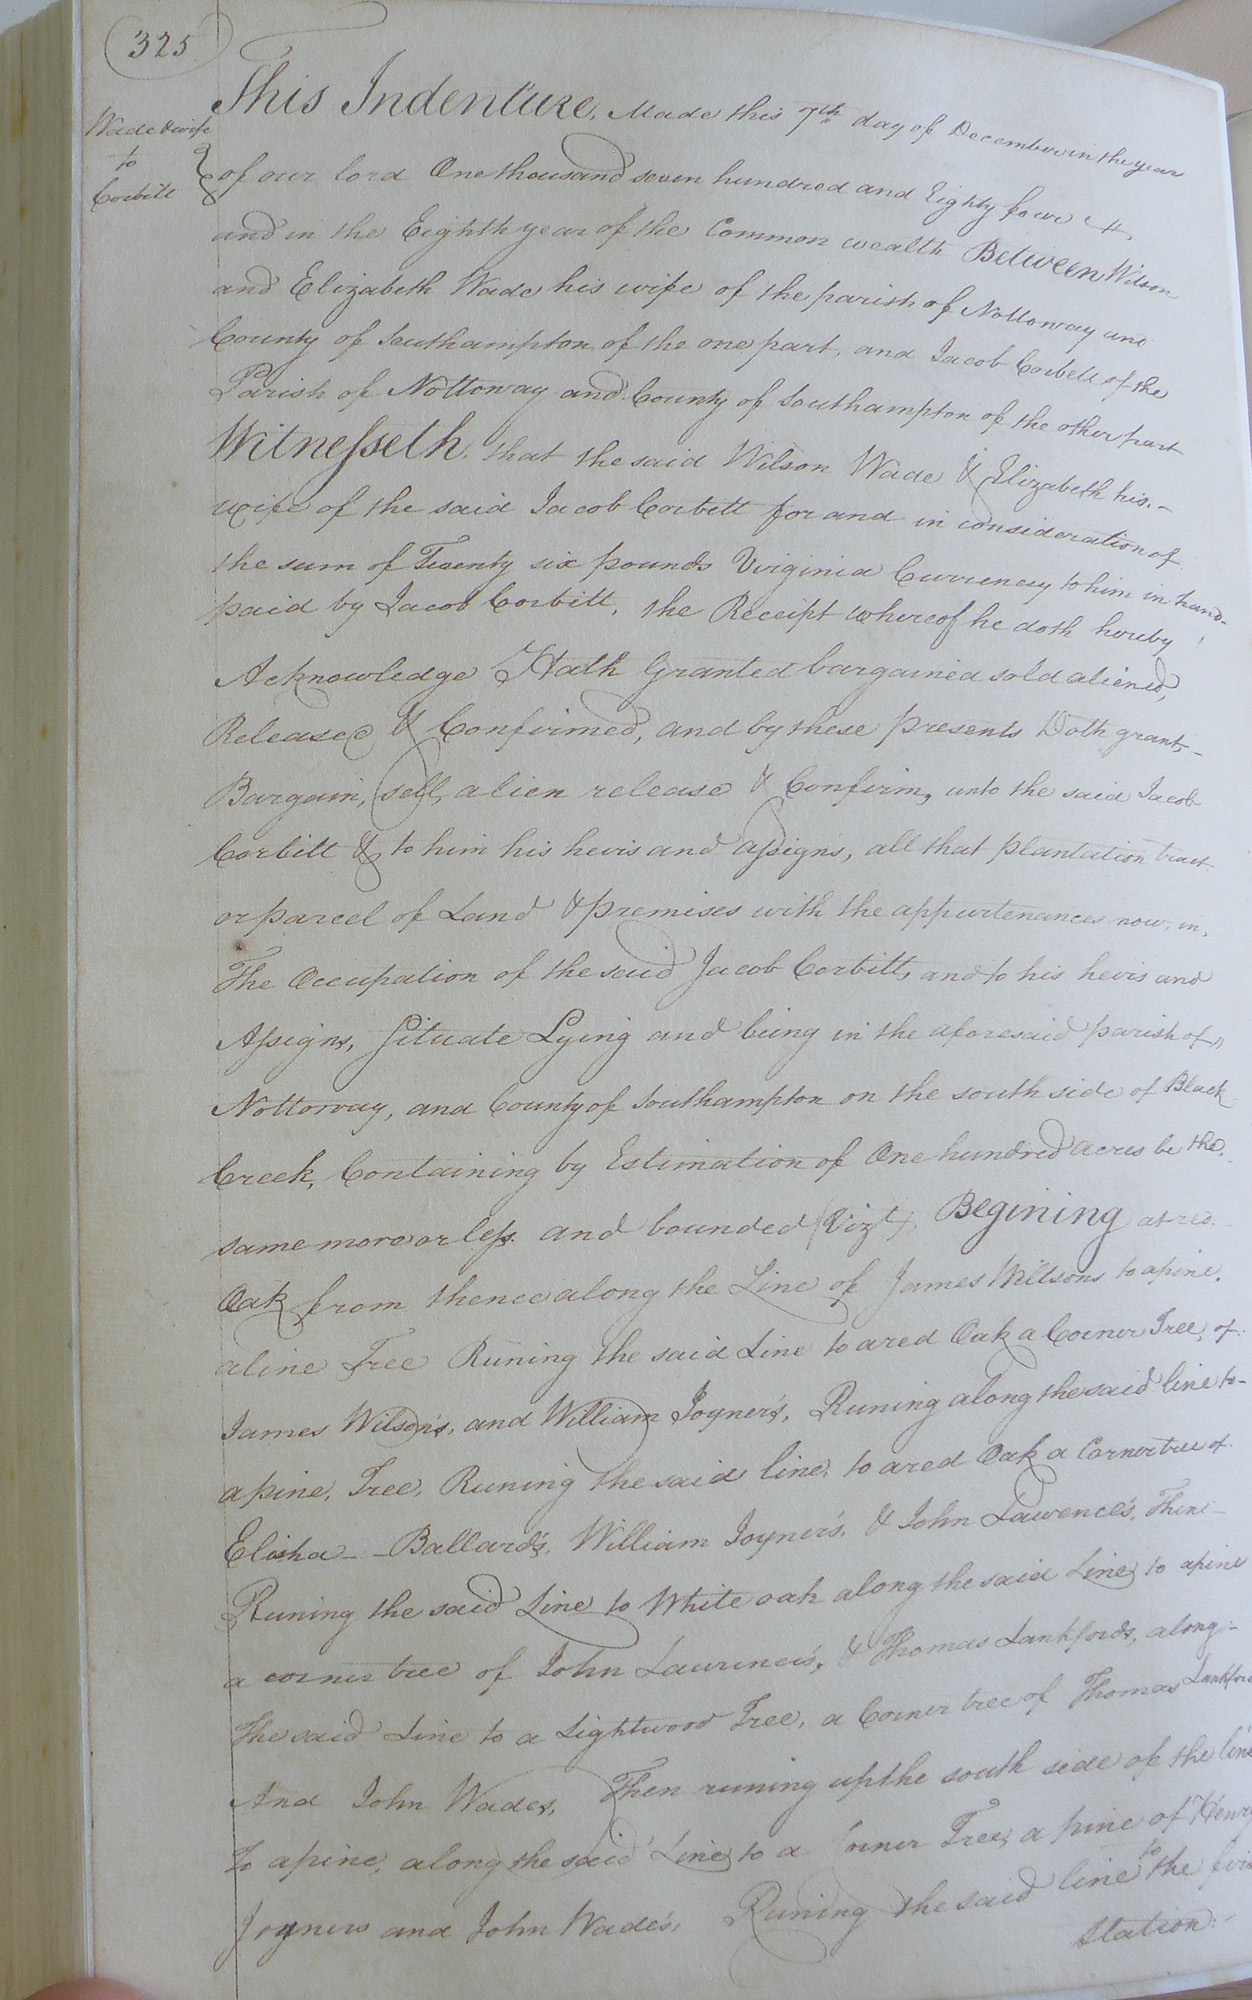 325
Wade & wife
to
Corbitt
This Indenture, Made this 7th day of December in the year
of our lord One thousand seven hundred and Eighty four &
and in the Eighth year of the Common wealth Between Wilson
and Elizabeth Wade his wife of the parish of Nottoway and
County of Southampton of the one part, and Jacob Corbett of the
Parish of Nottoway and County of Southampton of the other part
Witnesseth, that the said Wilson Wade & Elizabeth his.-
wife of the said Jacob Corbett for and in consideration of
the sum of Twenty six pounds Virginia Currency to him in hand-
paid by Jacob Corbitt, the Receipt whereof he doth hereby
Acknowledge Hath Granted bargained sold aliened,
Released & Confirmed, and by these presents Doth grant,-
Bargain, sell, alien release & Confirm, unto the said Jacob
Corbitt & to him his heirs and assigns, all that plantation tract
or parcel of Land & premises with the appurtenances now, in,
The Occupation of the said Jacob Corbitt, and to his heirs and
Assigns, Situate Lying and being in the aforesaid parish of"
Nottoway, and County of Southampton on the south side of Black
Creek, Containing by Estimation of One hundred acres be the
same more or less. and bounded (Vizt) Begining at red
Oak from thence along the Line of James Willsons to a pine.
a line Tree Runing the said Line to a red Oak a Corner Tree, of
James Wilson's, and William Joyner's, Runing along the said line to-
a pine, Tree, Runing the said line, to a red Oak a Corner tree of
Elisha -- Ballard's, William Joyner's, & John Lawrence's, Then-
Runing the said Line to White oak along the said Line, to a pine
a corner tree of John Laurence's, & Thomas Lankfords, along-
The said Line to a Lightwood Tree, a Corner tree of Thomas Lankford
And John Wades, Then runing up the south side of the line
To a pine, along the said Line, to a Corner Tree, a pine of Henry
Joyners and John Wade's, Runing the said line to the firs
Station.-